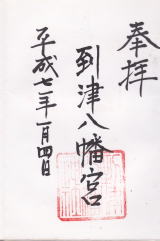 奉拝
到津八幡宮
平成七年一月四日